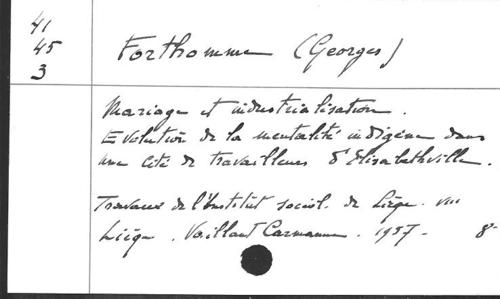 41
45
3
Forthomme (Georges)
Mariage et industrialisation.
Evolution de la mentalité indigène dans
une cité de travailleurs d'Elisabethville.
Travaux de l'Institut sociol. de Liège. VIII
Liège. Vaillant Carmanne. 1957- 8°